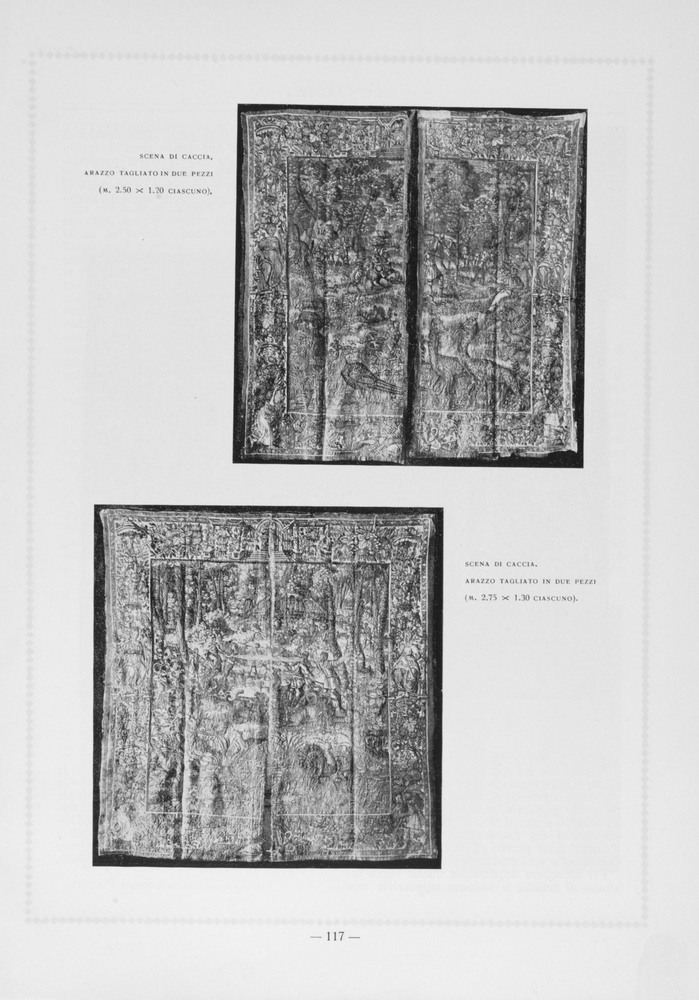 SCENA DI CACCIA,
ARAZZO TAGLIATO IN DUE PEZZI
(M. 2.50 × 1.20 CIASCUNO).
SCENA DI CACCIA.
ARAZZO TAGLIATO IN DUE PEZZI
(M. 2.75 × 1.30 CIASCUNO).
— 117 —